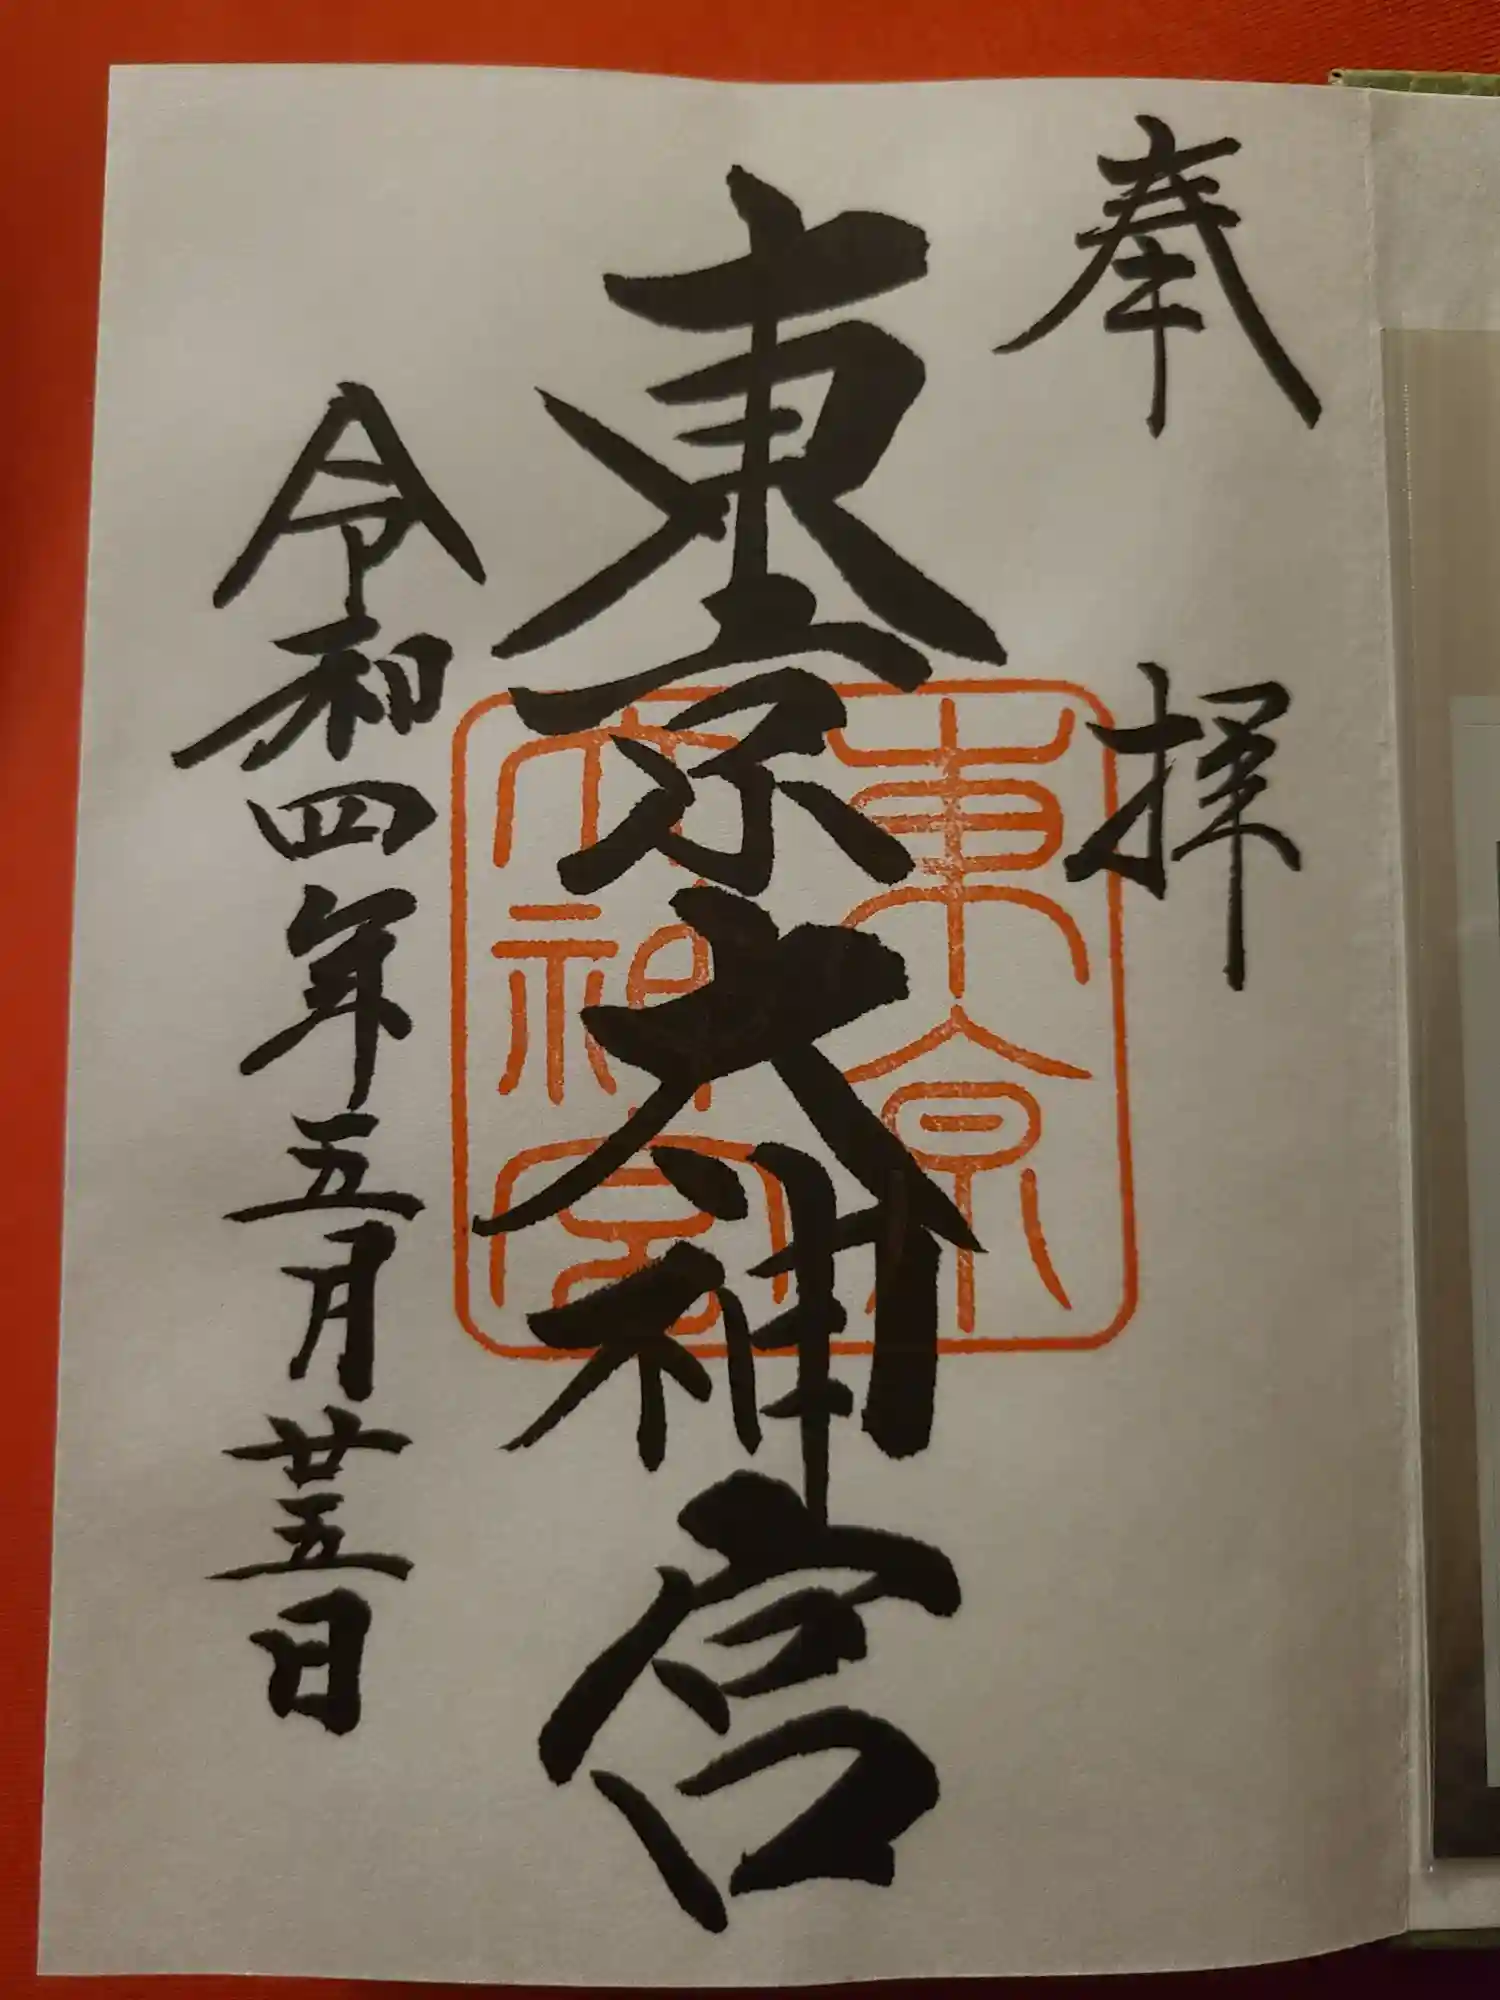 奉拝
東京大神宮
東京
大神宮
令和四年五月廿五日